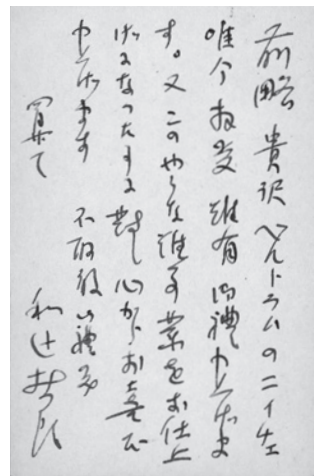 前略 貴訳 ベルトラムのニイチェ
唯今拝受 難有御禮申上げま
す。又このやうな難事業を御仕上
げになつたことに對し心からお喜び
申上げます 不取敢御禮まで
匆々
和辻哲郎